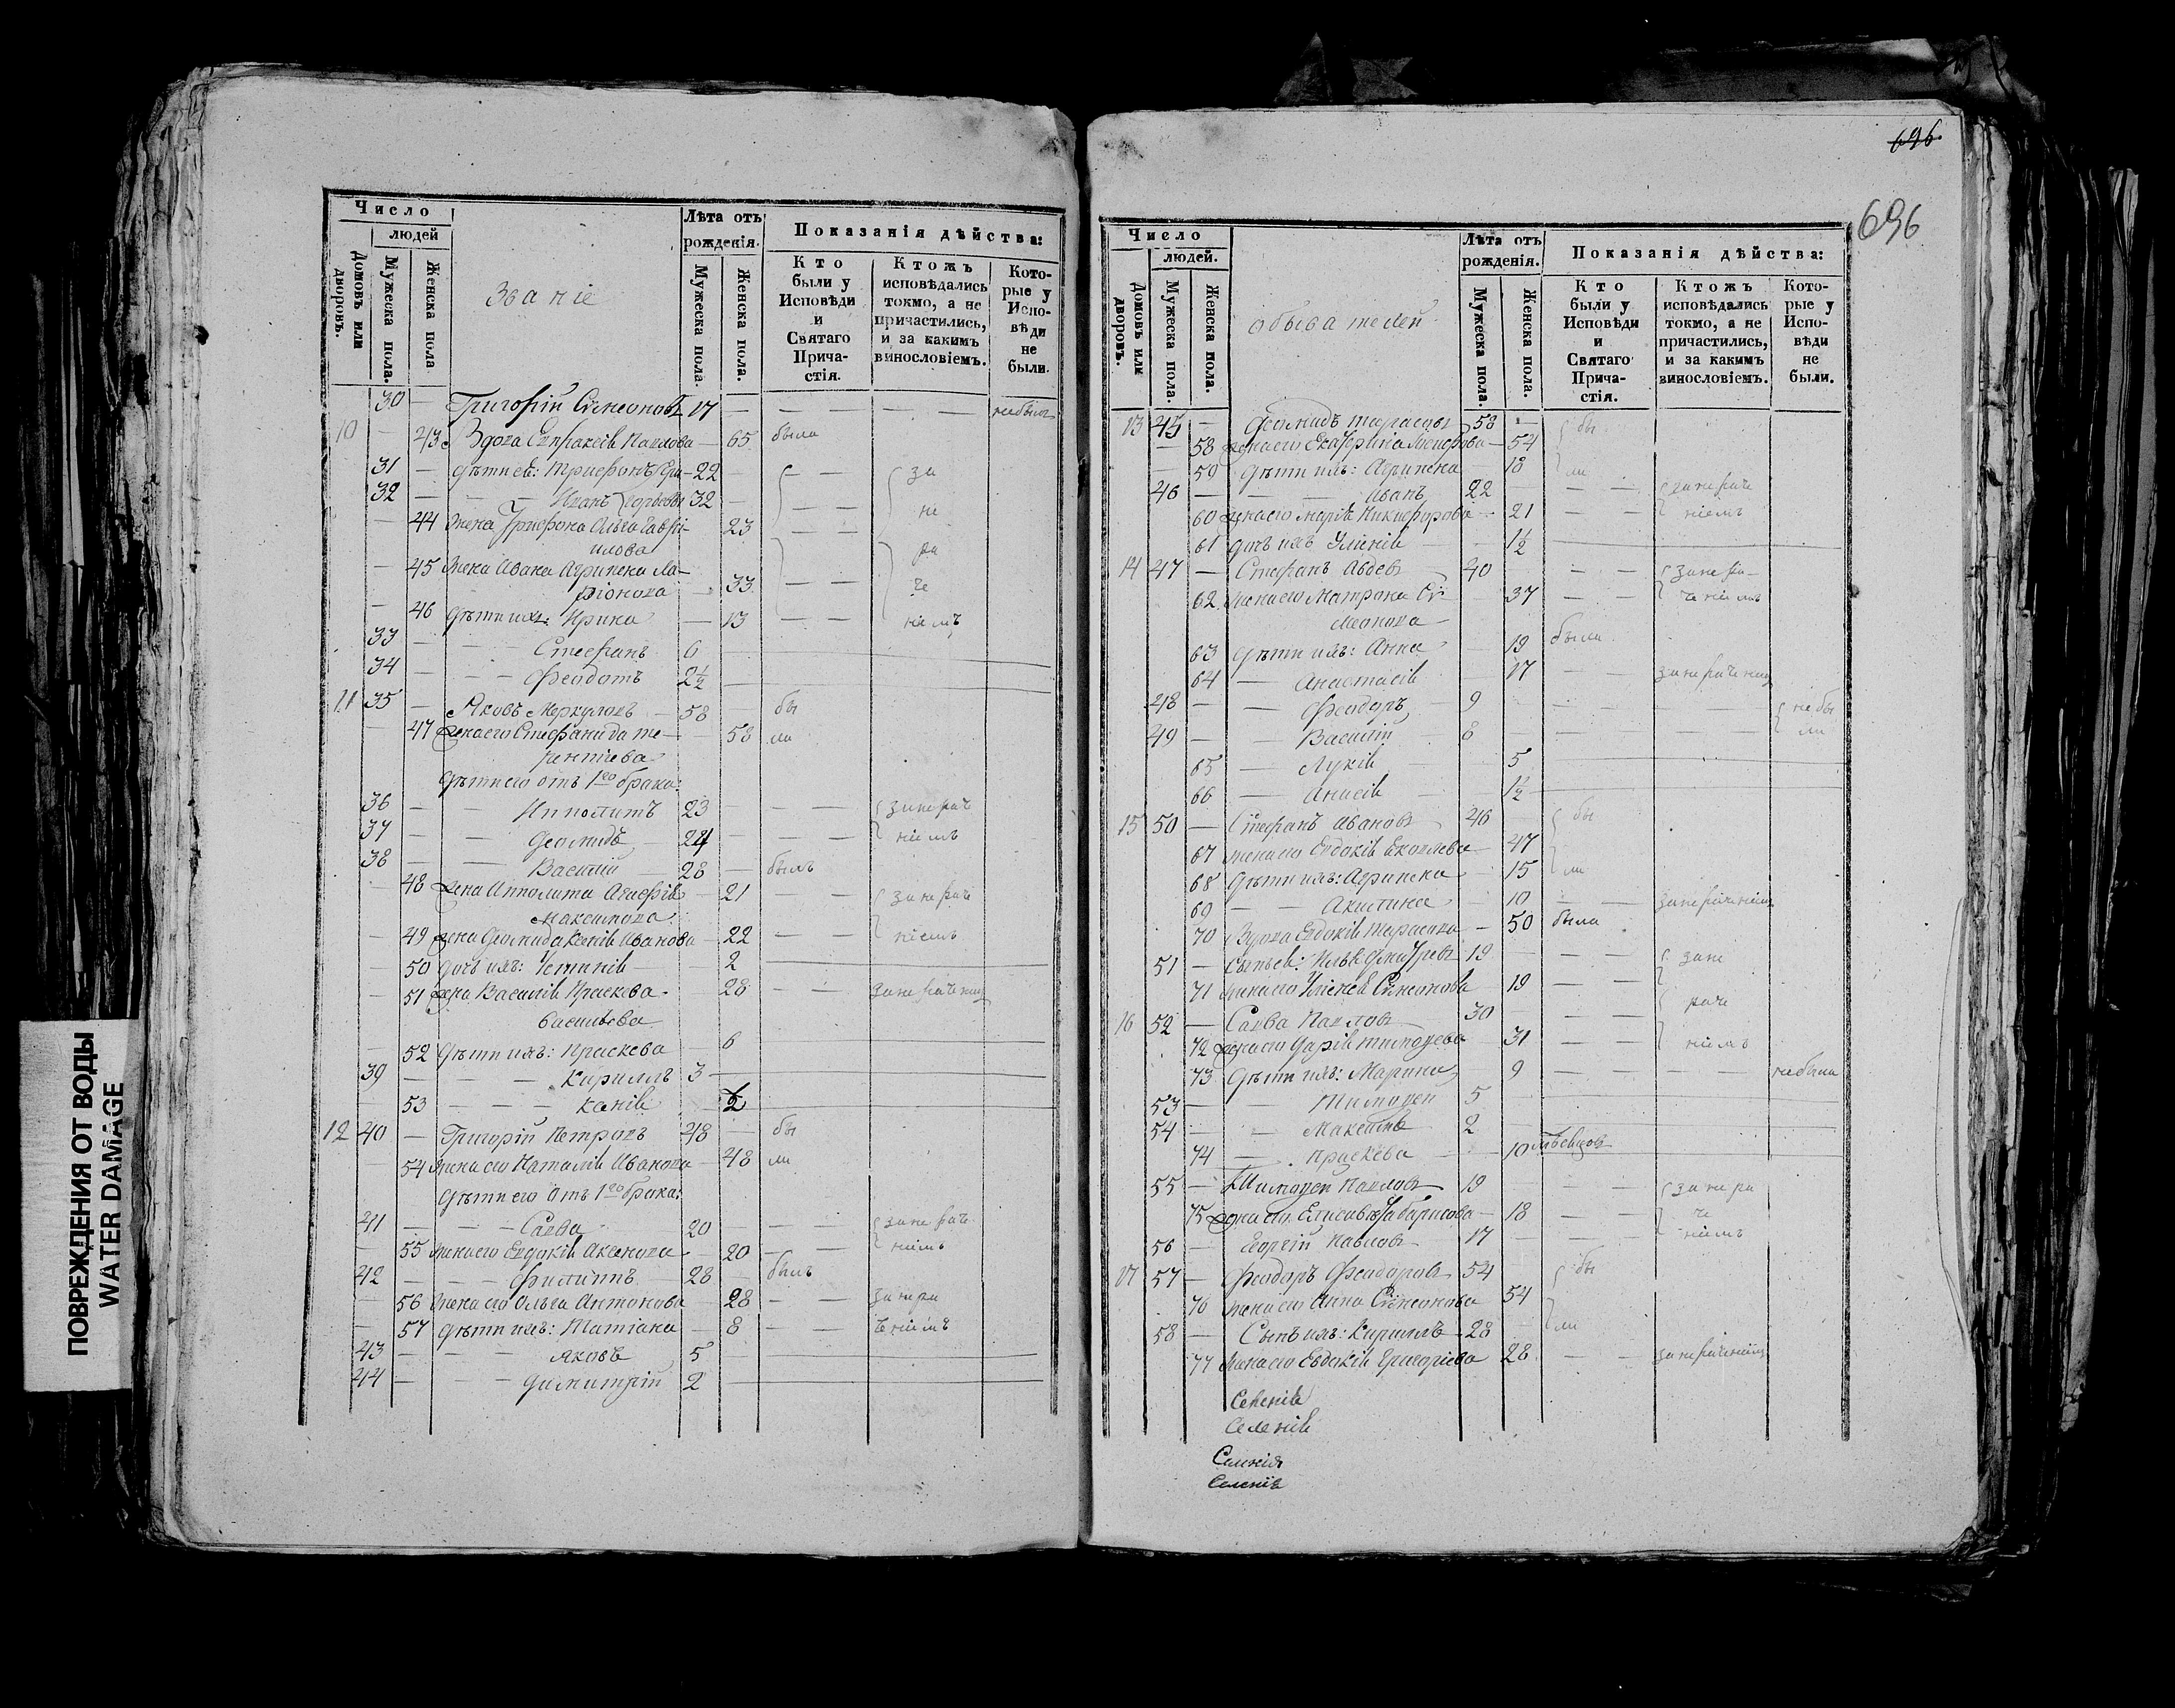 696
696
ПОВРЕЖДЕНИЯ ОТ ВОДЫ
WATER DAMAGE
Число
людей
Домовъ или дворовъ.
Мужеска пола.
Женска пола
Званіе
Лѣта отъ рожденія.
Мужеска пола.
Женска пола.
Показанія дѣйства:
Кто были у Исповѣди и Святаго Прича-стія.
Ктожъ исповѣдались токмо, а не причастились, и за какимъ винословіемъ.
Кото-рые у Испо-вѣди не были.
30 — Григорій Сѵмеоновъ 17 — — — — — небылъ
10 — 43 Вдова Евпраксія Павлова — 65 была
31 — Дѣти еѣ: Трифонъ 22 — — — за
32 — — — Иванъ 32 — — — не
44 Жена Трифона Ольга Гаврі- 23 — —
илова ра
45 Жена Ивана Агрипена Ла- че
ріонова — 33 — —
46 Дѣти ихъ: Ирина — 13 — — ніемъ
33 — — — Стефанъ 6
34 — — — Феодотъ 2½
11 35 — Яковъ Меркуловъ — 58 — бы
47 Жена его Стефанида Те- — 58 ли
рентіева
Дѣти его отъ 1го брака:
36 — — Ипполитъ 23 — — — занерач
37 — — Деомидъ 24 — — — ніемъ
38 — — Василій 28 — былъ
48 Жена Ипполита Агафія — 21 — — занераче
Максимова
49 Жена Деомида Ксенія Иванова — 22 — — ніемъ
50 Дочь ихъ: Устинія — 2
51 Жена Василія Праскева — 28 — — занераченіем
Васильева
52 Дѣти ихъ: Праскева — 6
39 — — — Кириллъ 3
53 — — — Ксенія ½
12 40 — Григорій Петровъ 48 — бы
54 Жена его Наталія Иванова — 48 ли
Дѣти его отъ 1го брака:
41 — — — Савва 20 — — — занераче
55 Жена его Евдокія Аксенова — 20 — — ніемъ
42 — — — Филиппъ 28 — былъ
56 Жена его Ольга Антонова — 28 — — занера
57 Дѣти ихъ: Татіана — 8 — — ченіемъ
43 — — — Яковъ 5
44 — — — Димитрій 2
Число
людей.
Домовъ или дворовъ.
Мужеска пола.
Женска пола.
обывателей
Лѣта отъ рожденія.
Мужеска пола.
Женска пола.
Показанія дѣйства:
Кто были у Исповѣди и Святаго Прича-стія.
Ктожъ исповѣдались токмо, а не причастились, и за какимъ винословіемъ.
Кото-рые у Испо-вѣди не были.
13 45 — Деомидъ Тарасовъ 58 — бы
58 Жена его — 54
59 Дѣти ихъ: Агрипена — 18 ли
46 — — — Иванъ 22 — — — занераче
60 Жена его Марія Никифорова — 21 — — ніемъ
61 Дочь ихъ Улинія — 1½
14 47 — Стефанъ Авдевъ 40 — — занера-
62 Жена его Матрона Сѵ- 37 — — ченіемъ
меонова
63 Дѣти ихъ: Анна — 19 были
64 — Анастасія — 17 — — занераченіем
48 — — Феодоръ — 9 — — — — — не бы
49 — Василій — 8 — — — — — ли
65 — Лукія — 5
66 — Анисія — 1½
15 50 — Стефанъ Ивановъ 46 — бы
67 Жена его Евдокія Яковлева — 47
68 Дѣти ихъ: Агрипена — 15 ли
69 — — Акилина — 10 — — занераченіем
70 Вдова Евдокія Тарасова — 50 была
51 — Сынъ еѣ: Илья Дмитревъ 19 — — — зане
71 Жена его Сѵмеонова — 19 — — раче
16 52 — Савва Павловъ 30 — — —
72 Жена его Дарія Тимофеева — 31 — — ніемъ
73 Дѣти ихъ: Марина — 9 — — — — — небыла
53 — — Тимофей 5
54 — — Максимъ 2
74 — Праскева — — 10 мѣсецовъ
55 — Тимофей Павловъ 19 — — — занера
75 Жена его Елисавета Борисова — 18 — — че
56 — Георгій Павловъ 17 — — — ніемъ
17 57 — Феодоръ Феодоровъ 54 — бы
76 Жена его Анна Сѵмеонова 54
58 — Сынъ ихъ: Кириллъ 28 — ли
77 Жена его Евдокія Григоріева 28 — — занераченіем
Селенія
Селенія
Селенія